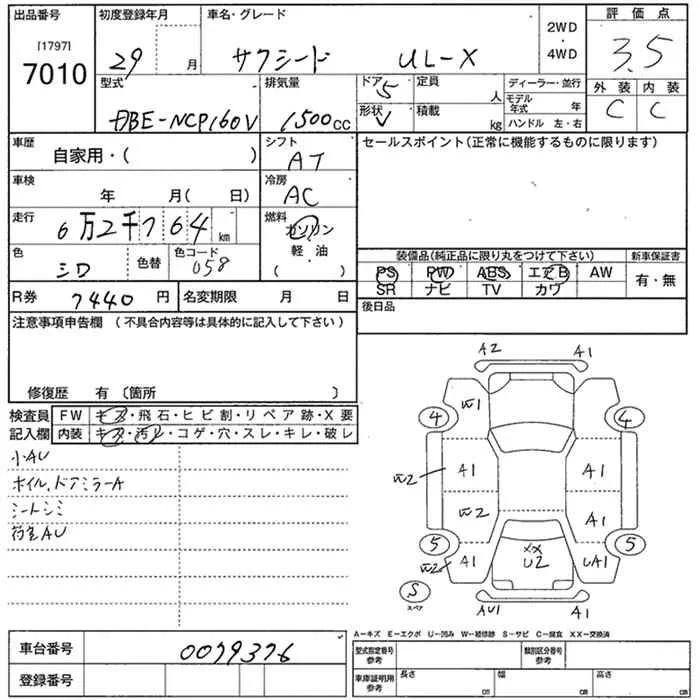 出品番号
[1797]
7010
初度登録年月
29 月
車名・グレード
サクシード UL-X
2WD
・
4WD
評価点
3.5
外装 内装
C C
型式
DBE-NCP160V
排気量
1500cc
ドア
5
形状
V
定員
人
積載
kg
ディーラー・並行
モデル年式 年
ハンドル 左・右
車歴
自家用・( )
シフト
AT
セールスポイント(正常に機能するものに限ります)
車検
年 月( 日)
冷房
AC
走行
6万2千764 km
燃料
ガソリン
・
軽・油
・
( )
色
シロ
色替
色コード
058
装備品(純正品に限り丸をつけて下さい)
PS PW ABS エアB AW
SR ナビ TV カワ
新車保証書
有・無
R券 7440 円
名変期限 月 日
後日品
注意事項申告欄 (不具合内容等は具体的に記入して下さい)
修復歴 有 〔箇所 〕
検査員
記入欄
FW キズ・飛石・ヒビ割・リペア跡・X要
内装 キズ・汚レ・コゲ・穴・スレ・キレ・破レ
小AU
ホイル、ドアミラーA
シートシミ
荷室AU
A2 A1
W1
4 4
W2 A1 A1
W2 A1
5 5
W2 A1 XX U2 UA1
S
スペア
AU1 A1
A-キズ E-エクボ U-凹み W-補修跡 S-サビ C-腐食 XX-交換済
車台番号 0079376
登録番号
型式指定番号
参考
類別区分番号
参考
車庫証明用
参考
長さ cm
幅 cm
高さ cm